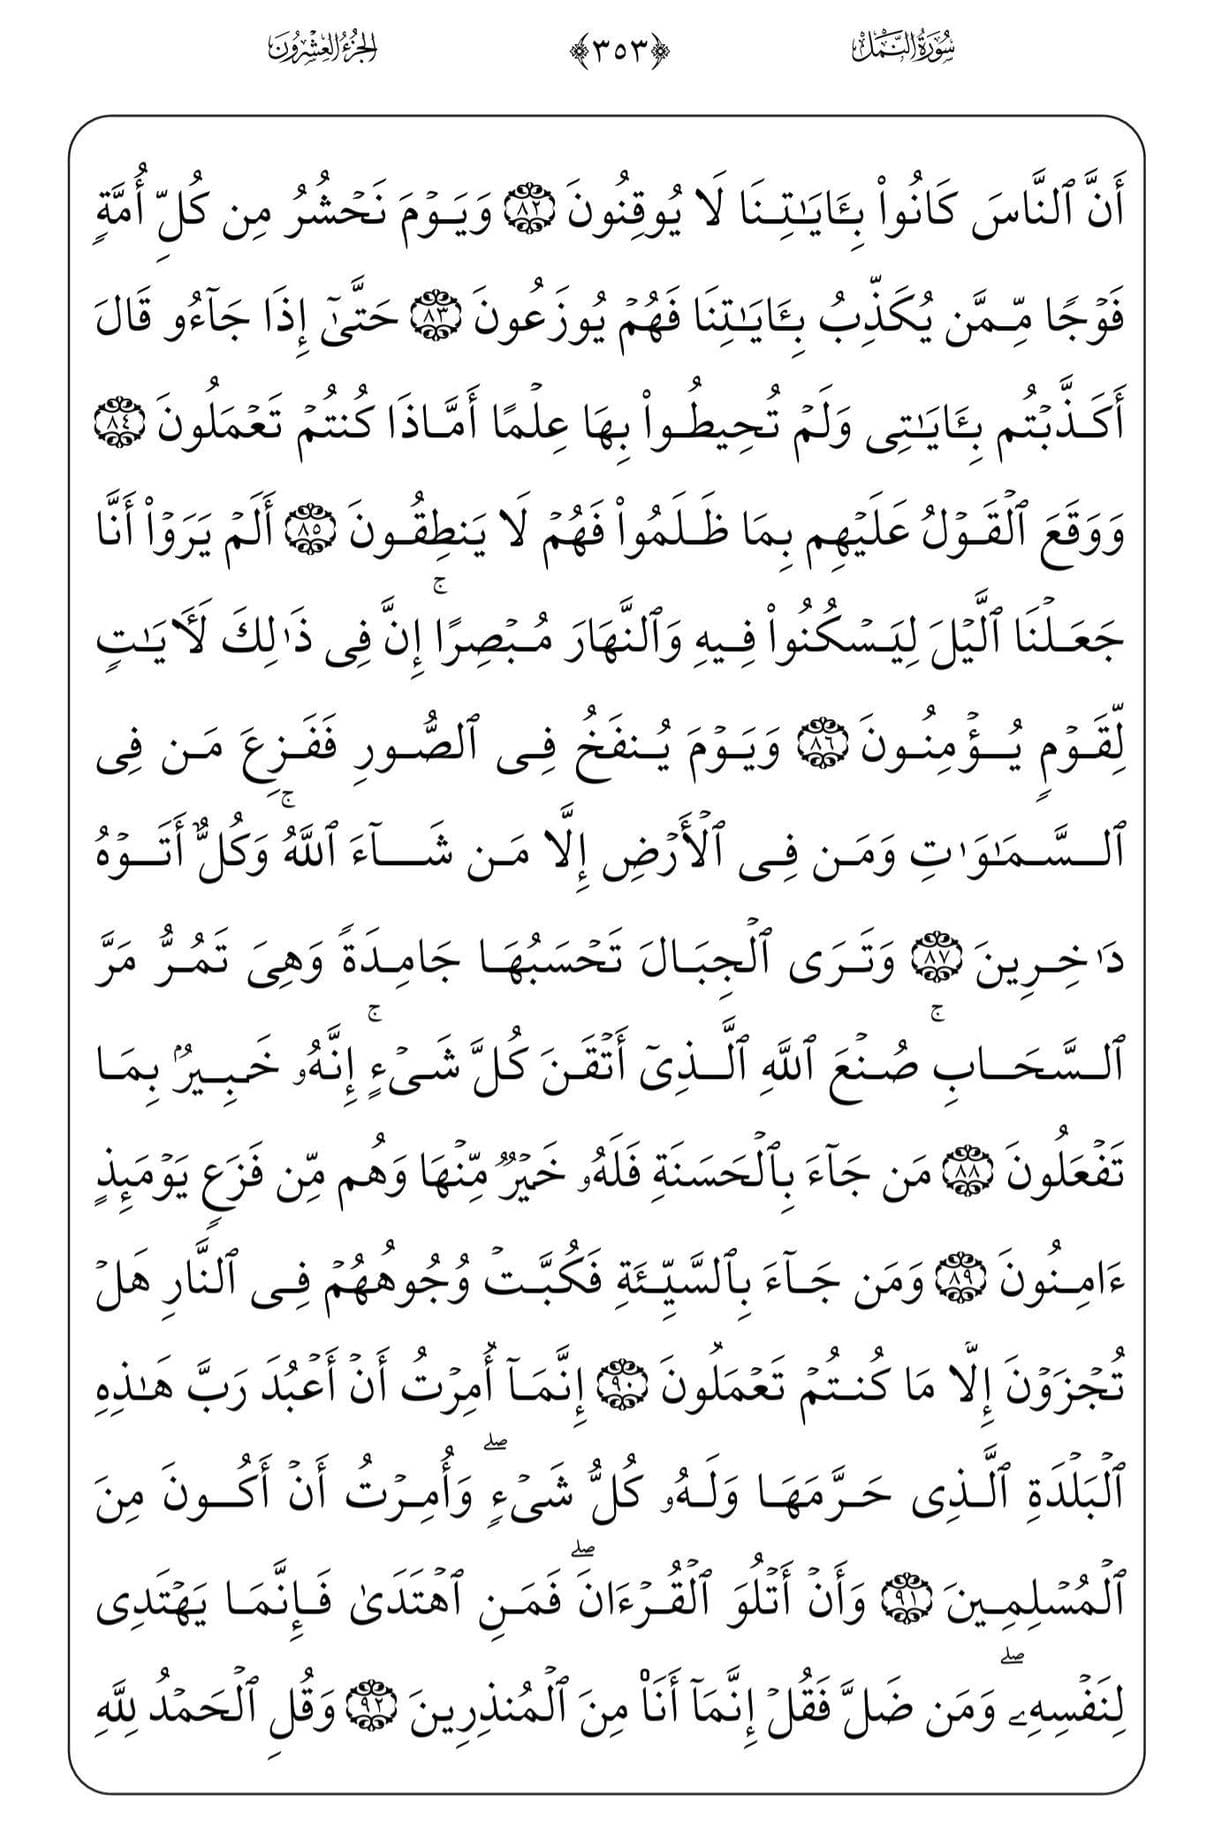 سُورَةُ النَّمْلِ ﴿٣٥٣﴾ الجُزْءُ العِشْرُونَ
أَنَّ ٱلنَّاسَ كَانُوا۟ بِـَٔايَـٰتِنَا لَا يُوقِنُونَ ٨٢ وَيَوْمَ نَحْشُرُ مِن كُلِّ أُمَّةٍ
فَوْجًا مِّمَّن يُكَذِّبُ بِـَٔايَـٰتِنَا فَهُمْ يُوزَعُونَ ٨٣ حَتَّىٰٓ إِذَا جَآءُو قَالَ
أَكَذَّبْتُم بِـَٔايَـٰتِى وَلَمْ تُحِيطُوا۟ بِهَا عِلْمًا أَمَّاذَا كُنتُمْ تَعْمَلُونَ ٨٤
وَوَقَعَ ٱلْقَوْلُ عَلَيْهِم بِمَا ظَلَمُوا۟ فَهُمْ لَا يَنطِقُونَ ٨٥ أَلَمْ يَرَوْا۟ أَنَّا
جَعَلْنَا ٱلَّيْلَ لِيَسْكُنُوا۟ فِيهِ وَٱلنَّهَارَ مُبْصِرًا ۚ إِنَّ فِى ذَٰلِكَ لَـَٔايَـٰتٍ
لِّقَوْمٍ يُؤْمِنُونَ ٨٦ وَيَوْمَ يُنفَخُ فِى ٱلصُّورِ فَفَزِعَ مَن فِى
ٱلسَّمَـٰوَٰتِ وَمَن فِى ٱلْأَرْضِ إِلَّا مَن شَآءَ ٱللَّهُ ۚ وَكُلٌّ أَتَوْهُ
دَٰخِرِينَ ٨٧ وَتَرَى ٱلْجِبَالَ تَحْسَبُهَا جَامِدَةً وَهِىَ تَمُرُّ مَرَّ
ٱلسَّحَابِ ۚ صُنْعَ ٱللَّهِ ٱلَّذِىٓ أَتْقَنَ كُلَّ شَىْءٍ ۚ إِنَّهُۥ خَبِيرٌۢ بِمَا
تَفْعَلُونَ ٨٨ مَن جَآءَ بِٱلْحَسَنَةِ فَلَهُۥ خَيْرٌ مِّنْهَا وَهُم مِّن فَزَعٍ يَوْمَئِذٍ
ءَامِنُونَ ٨٩ وَمَن جَآءَ بِٱلسَّيِّئَةِ فَكُبَّتْ وُجُوهُهُمْ فِى ٱلنَّارِ هَلْ
تُجْزَوْنَ إِلَّا مَا كُنتُمْ تَعْمَلُونَ ٩٠ إِنَّمَآ أُمِرْتُ أَنْ أَعْبُدَ رَبَّ هَـٰذِهِ
ٱلْبَلْدَةِ ٱلَّذِى حَرَّمَهَا وَلَهُۥ كُلُّ شَىْءٍ ۖ وَأُمِرْتُ أَنْ أَكُونَ مِنَ
ٱلْمُسْلِمِينَ ٩١ وَأَنْ أَتْلُوَ ٱلْقُرْءَانَ ۖ فَمَنِ ٱهْتَدَىٰ فَإِنَّمَا يَهْتَدِى
لِنَفْسِهِۦ ۖ وَمَن ضَلَّ فَقُلْ إِنَّمَآ أَنَا۠ مِنَ ٱلْمُنذِرِينَ ٩٢ وَقُلِ ٱلْحَمْدُ لِلَّهِ